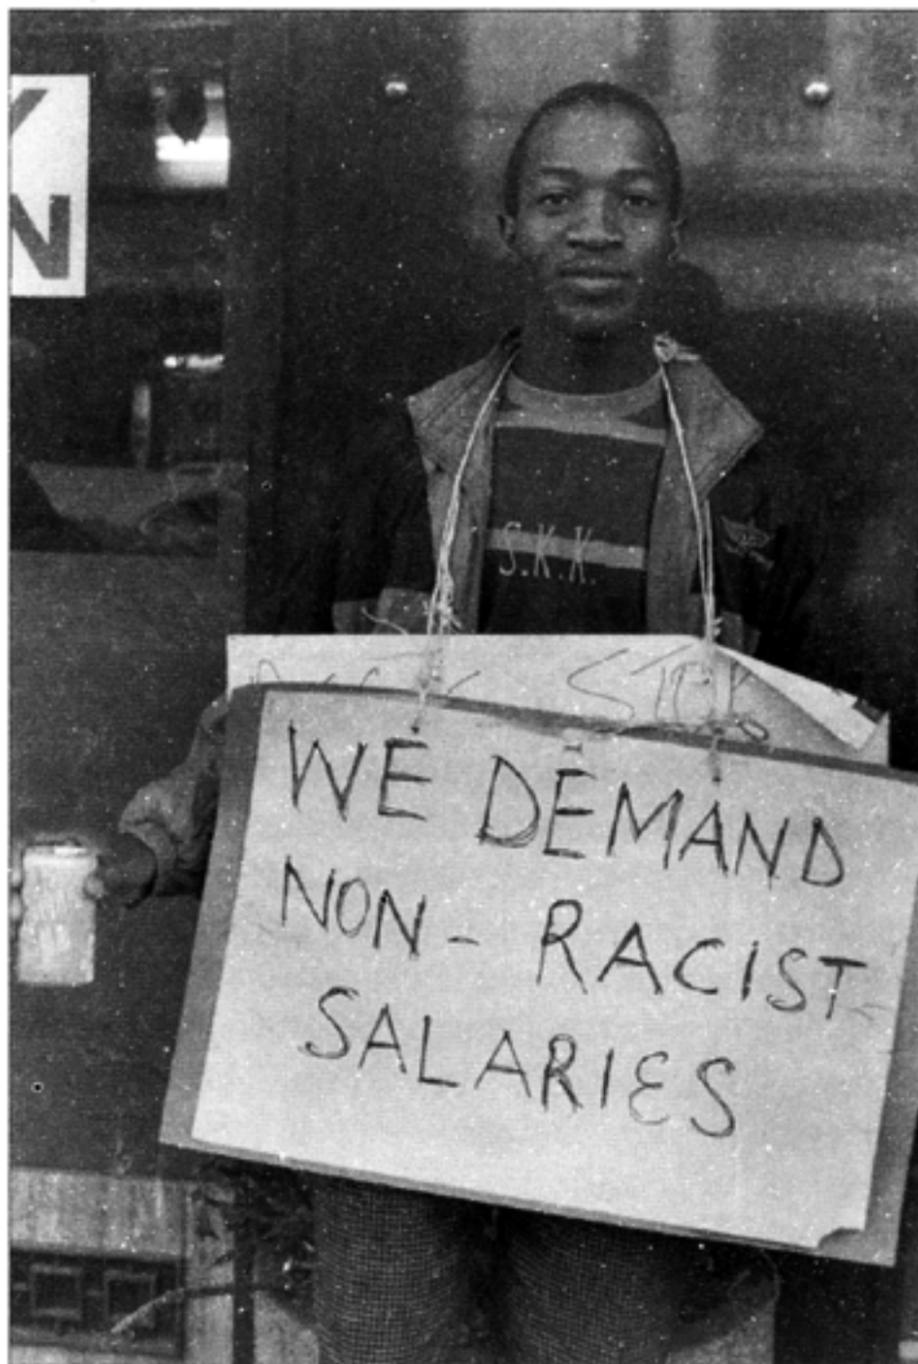 N
S.K.K.
WE DEMAND
NON-RACIST
SALARIES